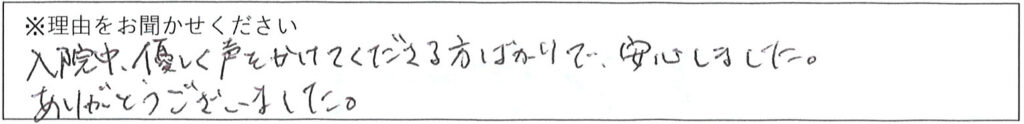 ※理由をお聞かせください
入院中、優しく声をかけてくださる方ばかりで、安心しました。
ありがとうございました。